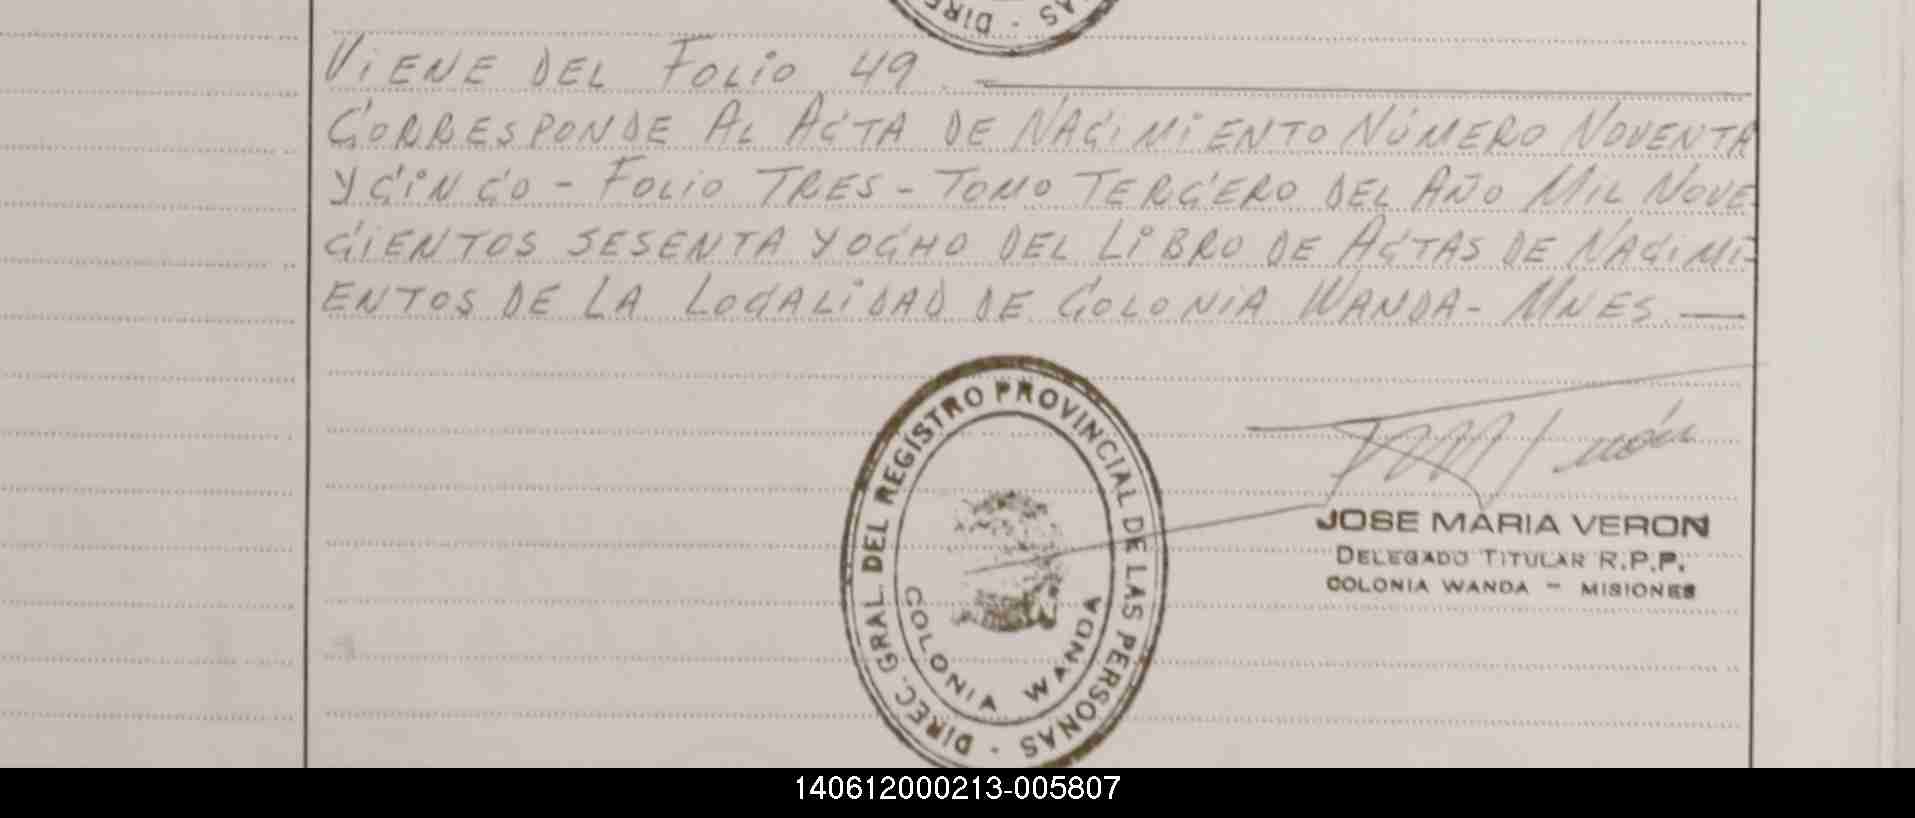 DIREC
LAS
VIENE DEL FOLIO 49.
CORRESPONDE AL ACTA DE NACIMIENTO NÚMERO NOVENTA
Y CINCO - FOLIO TRES - TOMO TERCERO DEL AÑO MIL NOVE-
CIENTOS SESENTA Y OCHO DEL LIBRO DE ACTAS DE NACIMI-
ENTOS DE LA LOCALIDAD DE COLONIA WANDA - MNES
DIREC. GRAL. DEL REGISTRO PROVINCIAL DE LAS PERSONAS -
COLONIA WANDA
JOSE MARIA VERON
DELEGADO TITULAR R.P.P.
COLONIA WANDA - MISIONES
140612000213-005807